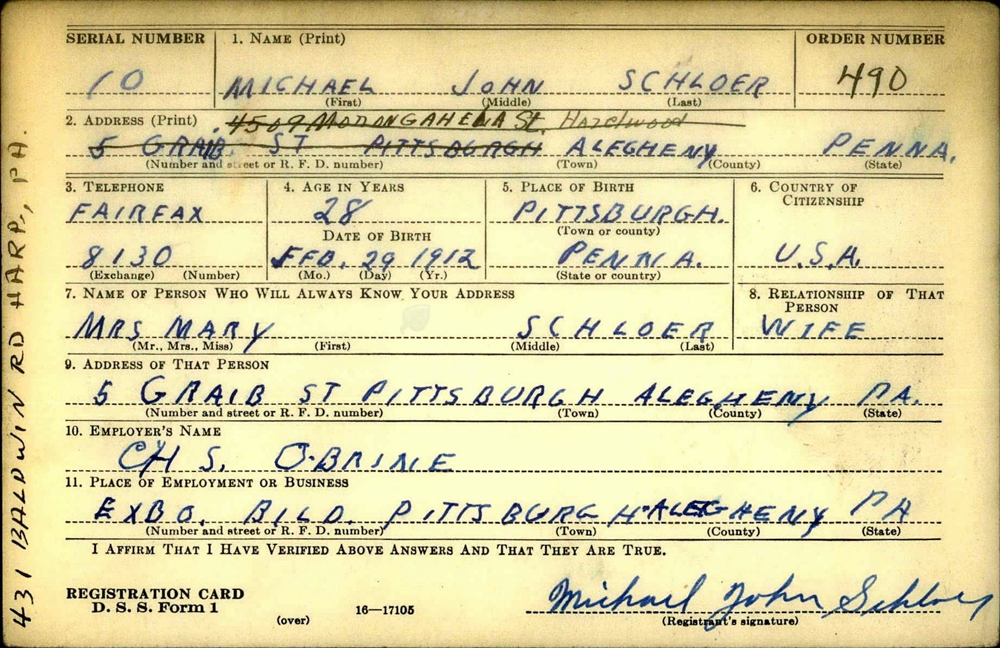 SERIAL NUMBER 1. NAME (Print) ORDER NUMBER
10 MICHAEL JOHN SCHLOER 490
(First) (Middle) (Last)
2. ADDRESS (Print) 4509 MONONGAHELA St. Hazelwood
5 GRAIB ST PITTSBURGH ALEGHENY PENNA.
(Number and street or R. F. D. number) (Town) (County) (State)
3. TELEPHONE 4. AGE IN YEARS 5. PLACE OF BIRTH 6. COUNTRY OF CITIZENSHIP
FAIRFAX 28 PITTSBURGH.
DATE OF BIRTH (Town or county)
8130 FEB. 29 1912 PENNA. U.S.A.
(Exchange) (Number) (Mo.) (Day) (Yr.) (State or country)
7. NAME OF PERSON WHO WILL ALWAYS KNOW YOUR ADDRESS 8. RELATIONSHIP OF THAT PERSON
MRS MARY SCHLOER WIFE
(Mr., Mrs., Miss) (First) (Middle) (Last)
9. ADDRESS OF THAT PERSON
5 GRAIB ST PITTSBURGH ALEGHENY PA.
(Number and street or R. F. D. number) (Town) (County) (State)
10. EMPLOYER'S NAME
CHS. O'BRINE
11. PLACE OF EMPLOYMENT OR BUSINESS
EXBO. BILD. PITTSBURGH ALEGHENY PA
(Number and street or R. F. D. number) (Town) (County) (State)
I AFFIRM THAT I HAVE VERIFIED ABOVE ANSWERS AND THAT THEY ARE TRUE.
REGISTRATION CARD
D. S. S. Form 1 16—17105 Michael John Schloer
(over) (Registrant's signature)
431 BALDWIN RD HARP., PA.